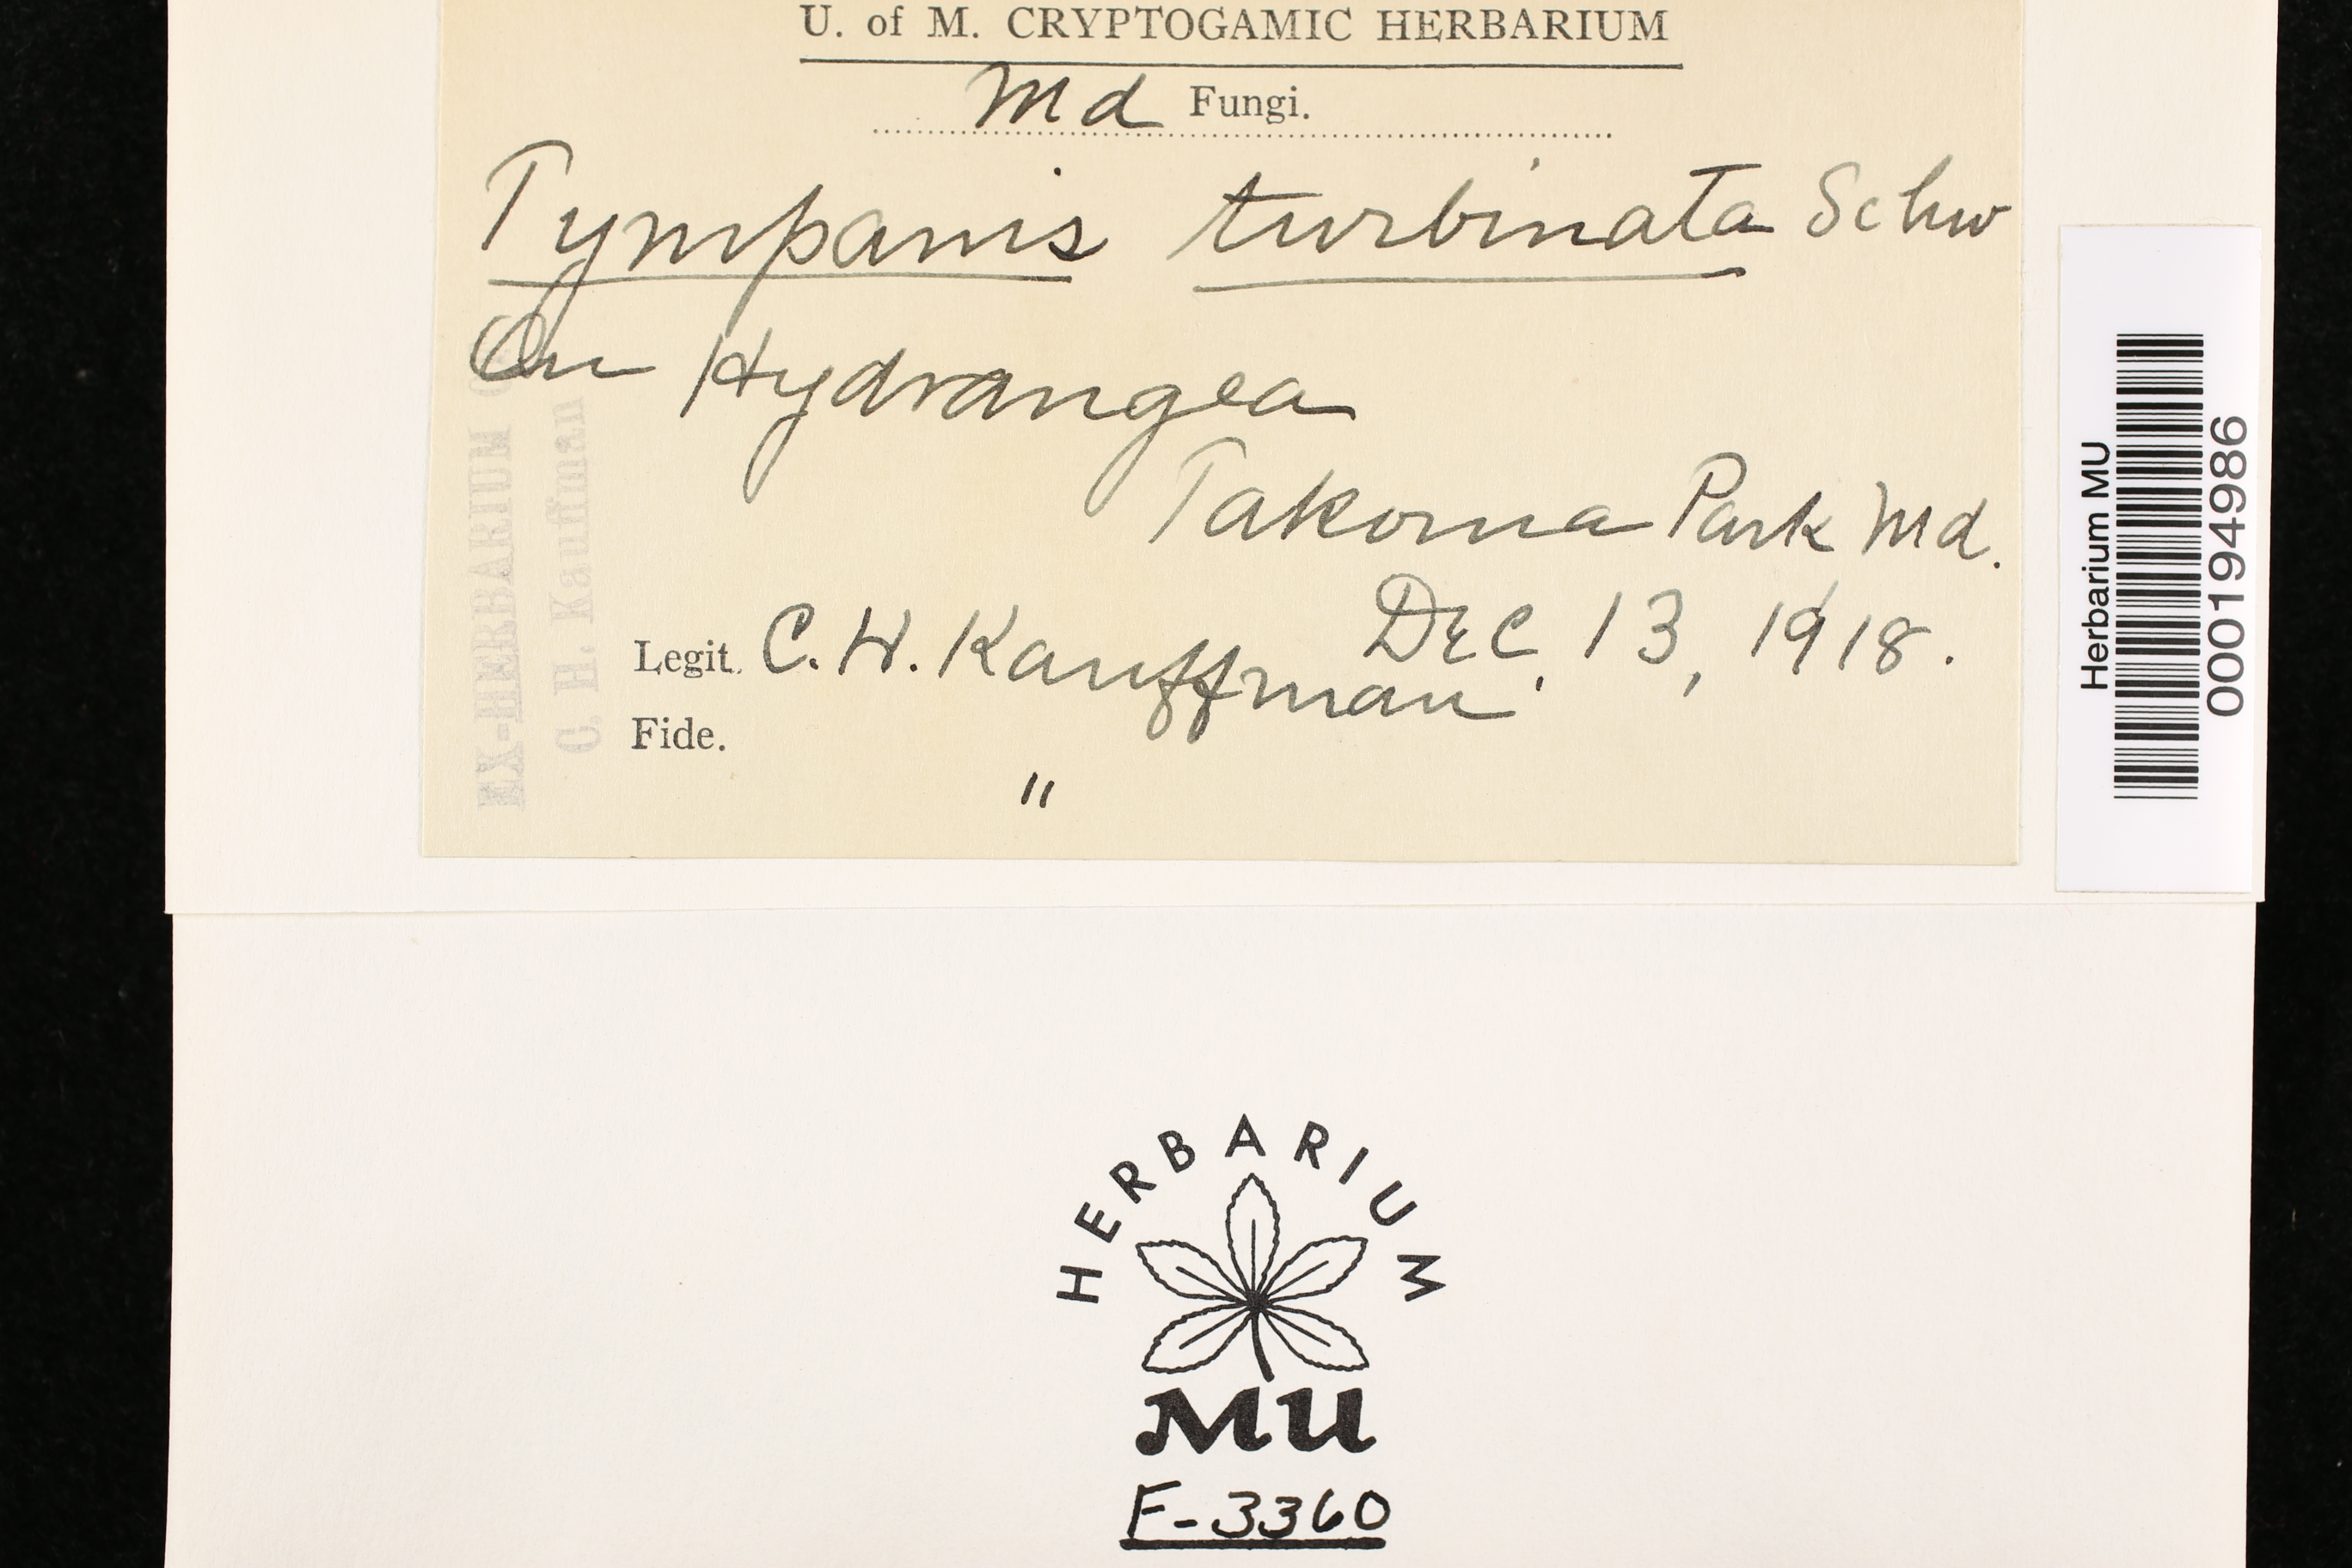 U. of M. CRYPTOGAMIC HERBARIUM
Md Fungi.
Tympanis turbinata Schw
On Hydrangea
Takoma Park Md.
Dec. 13, 1918.
Legit. C. H. Kauffman
Fide.
"
EX-HERBARIUM
C. H. Kauffman
Herbarium MU
000194986
HERBARIUM
MU
F-3360